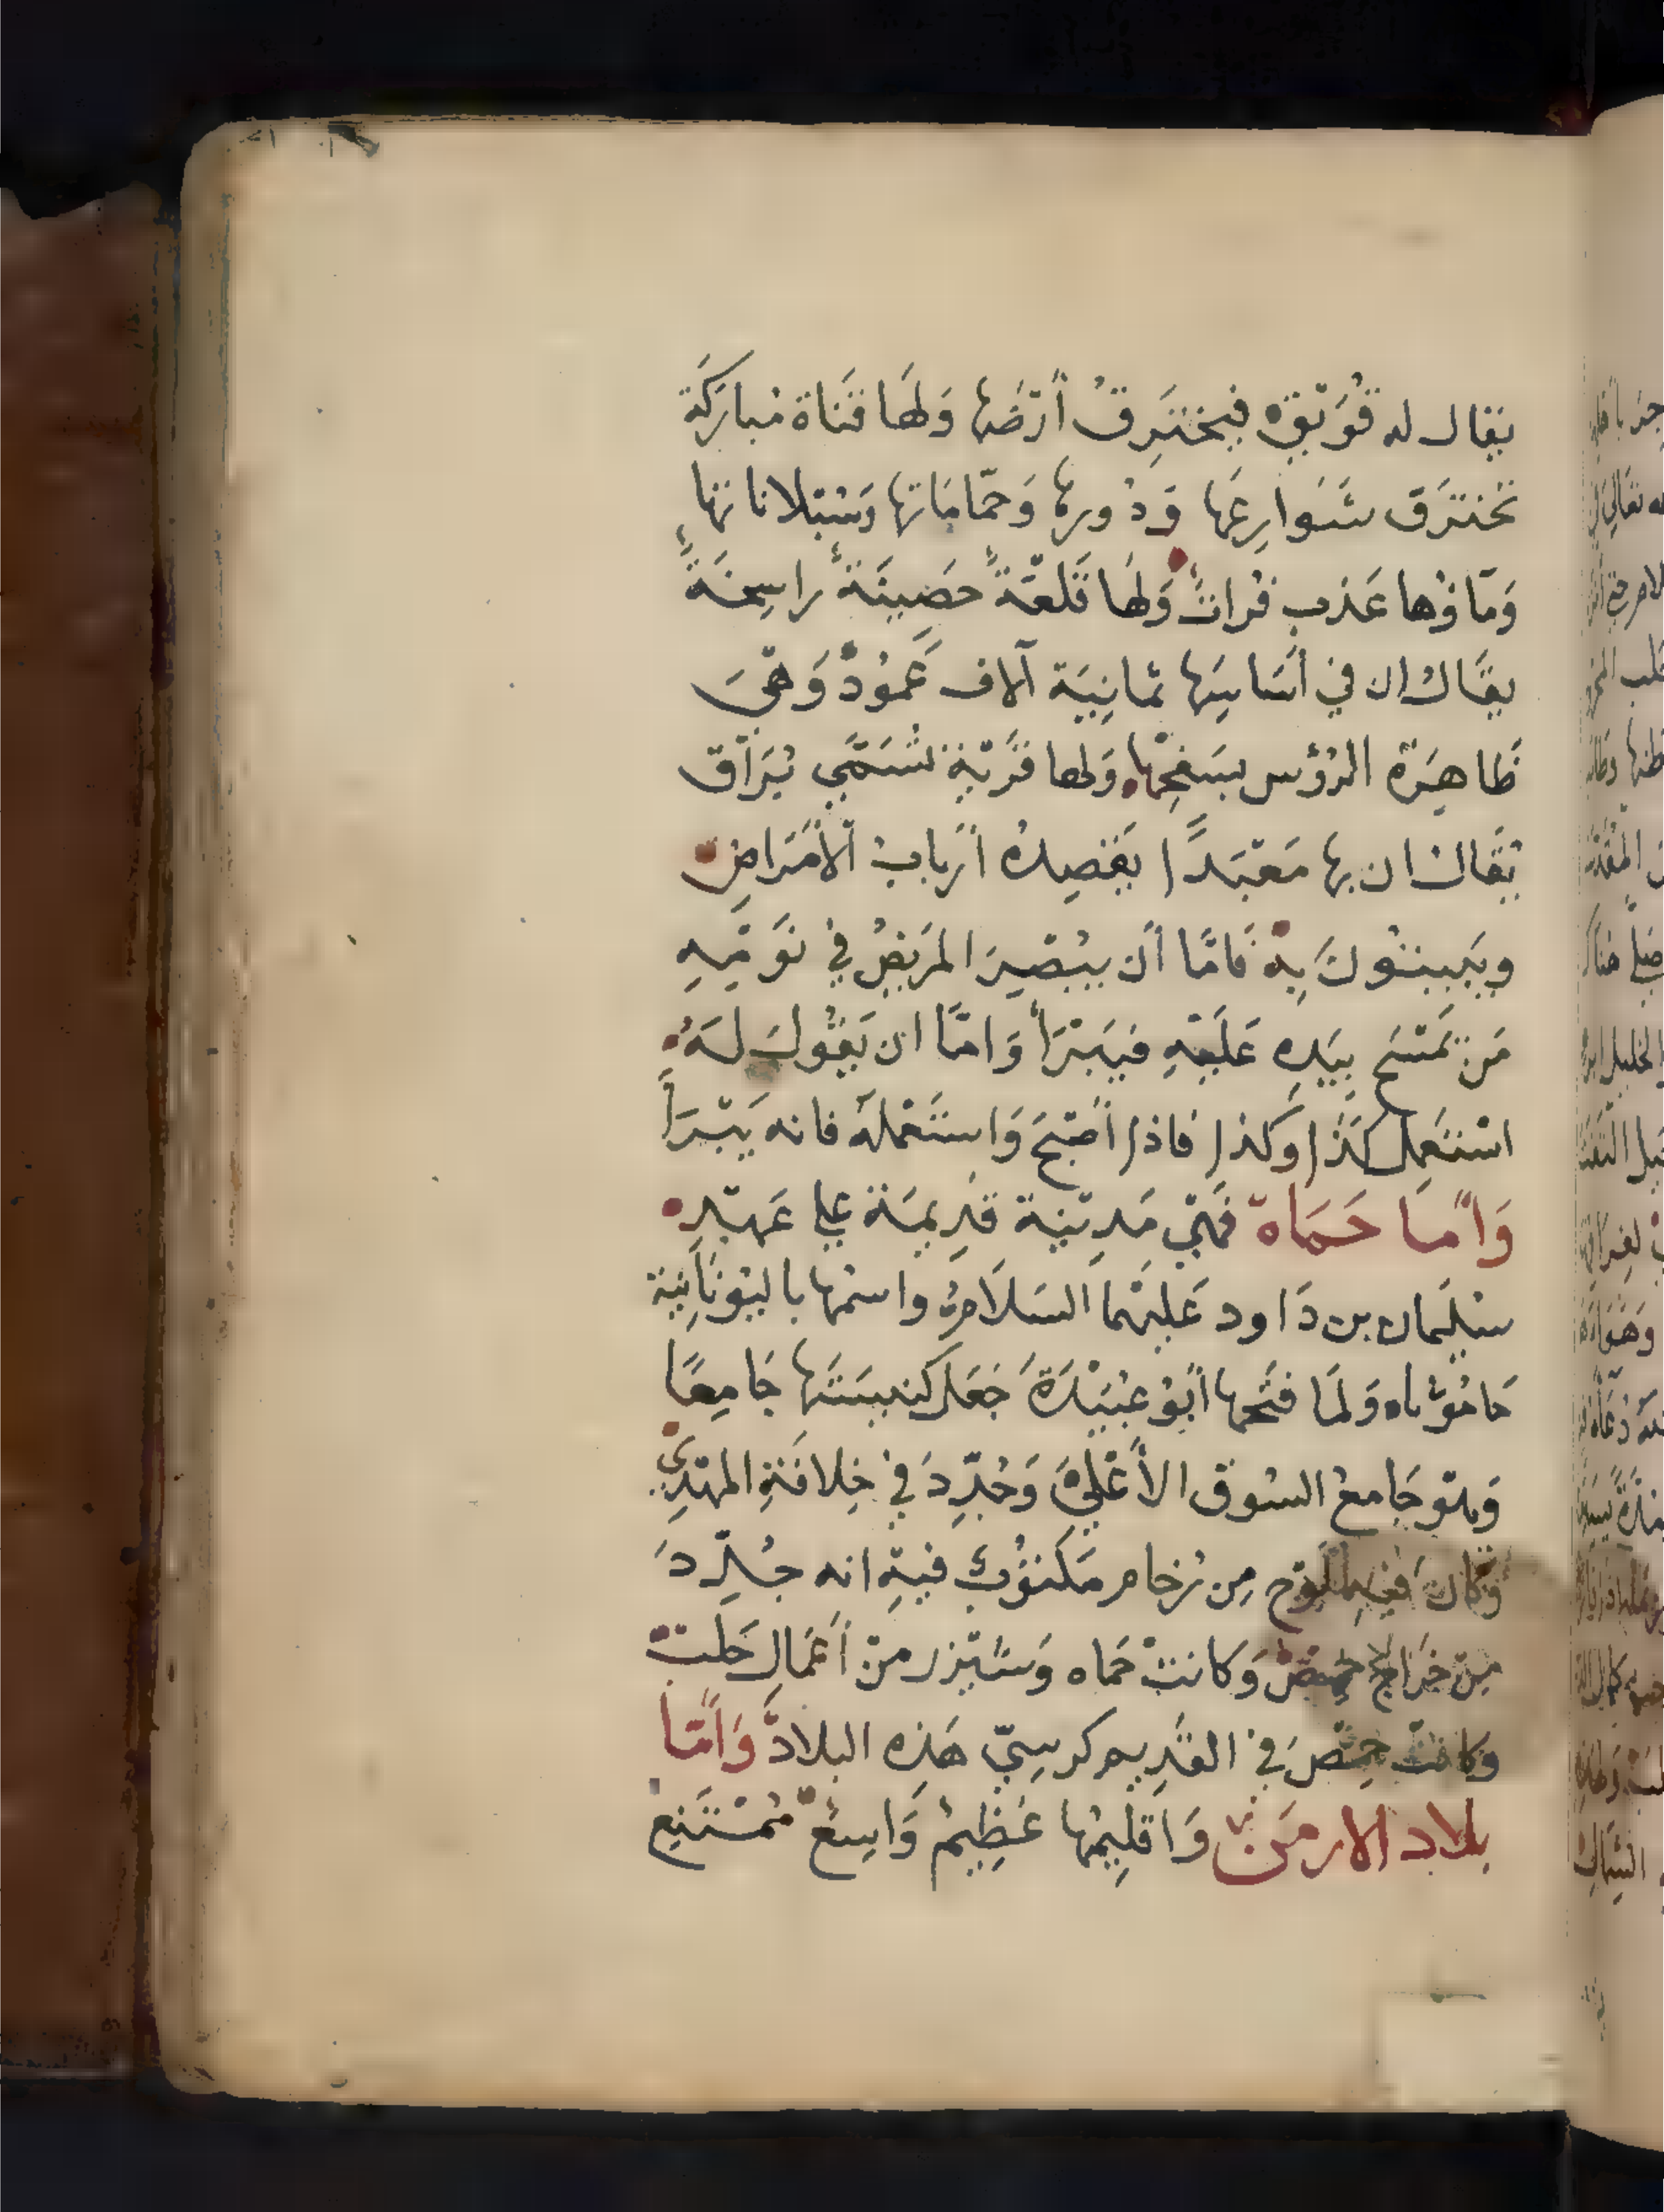 يقال له قُوَيْق فيخترِقُ أرْضَها وَلَها قَناة مُباركَة
تخترَق شَوارِعَها وَدُورها وَحَمّاماتها وَسْبلاناتها
وَماؤها عَذب فُراتٌ وَلَها قَلعَةً حَصِينَةً راسِخَةً
يقَال ان في أسَاسِها ثمانِيَة آلاف عَمُودْ وَهْيَ
ظاهِرَة الرؤس بسَفحِها وَلها قرْيَة تُسَمَّي بُرَاق
يُقَال ان بها مَعْبَدًا يَقْصِدهُ أرْباب الأمْرَاضِ
ويَبيتُونَ بِهْ فَامّا أن يُبْصِرَ المَريضُ في نَوْمِهِ
مَن يَمْسَح بيَدِهِ عَلَيْهِ فيَبْرَأ وَامّا ان يَقُولَ لَهُ
اسْتَعمِل كَذا وكذا فاذا أصْبَحَ وَاسْتَعْمَلَه فانه يَبْرَأ
وَأمّا حَمَاة فَهْي مَدِيْنة قَدِيمَة علي عَهْدِ
سُلَيمان بن دَاود عَلَيْهما السَلَامُ واسمُها باليُونَانِية
حَامُوثاه وَلَمَا فتَحها أبُو عُبَيْدَةَ جَعَل كنيسَتَها جَامِعًا
وَهْو جَامعُ السُوق الأعْلَي وَجُدِّدَ في خِلافَةِ المهْدِي
وَكَان فيه لَوْح مِن رُخام مَكتُوبٌ فيهِ انه جُدِّدَ
مِنْ خَرَاج حِمْصْ وَكانتْ حَماه وَشَيْزر مِنْ أعْمَال حَلَبْ
وَكانتْ حِمْصَ في القَدِيم كرسِيّ هَذِه البلادْ وَأمّا
بلاد الارمَن وَاقلِيمُها عَظِيمٌ وَاسِعٌ مُمْتَنِع